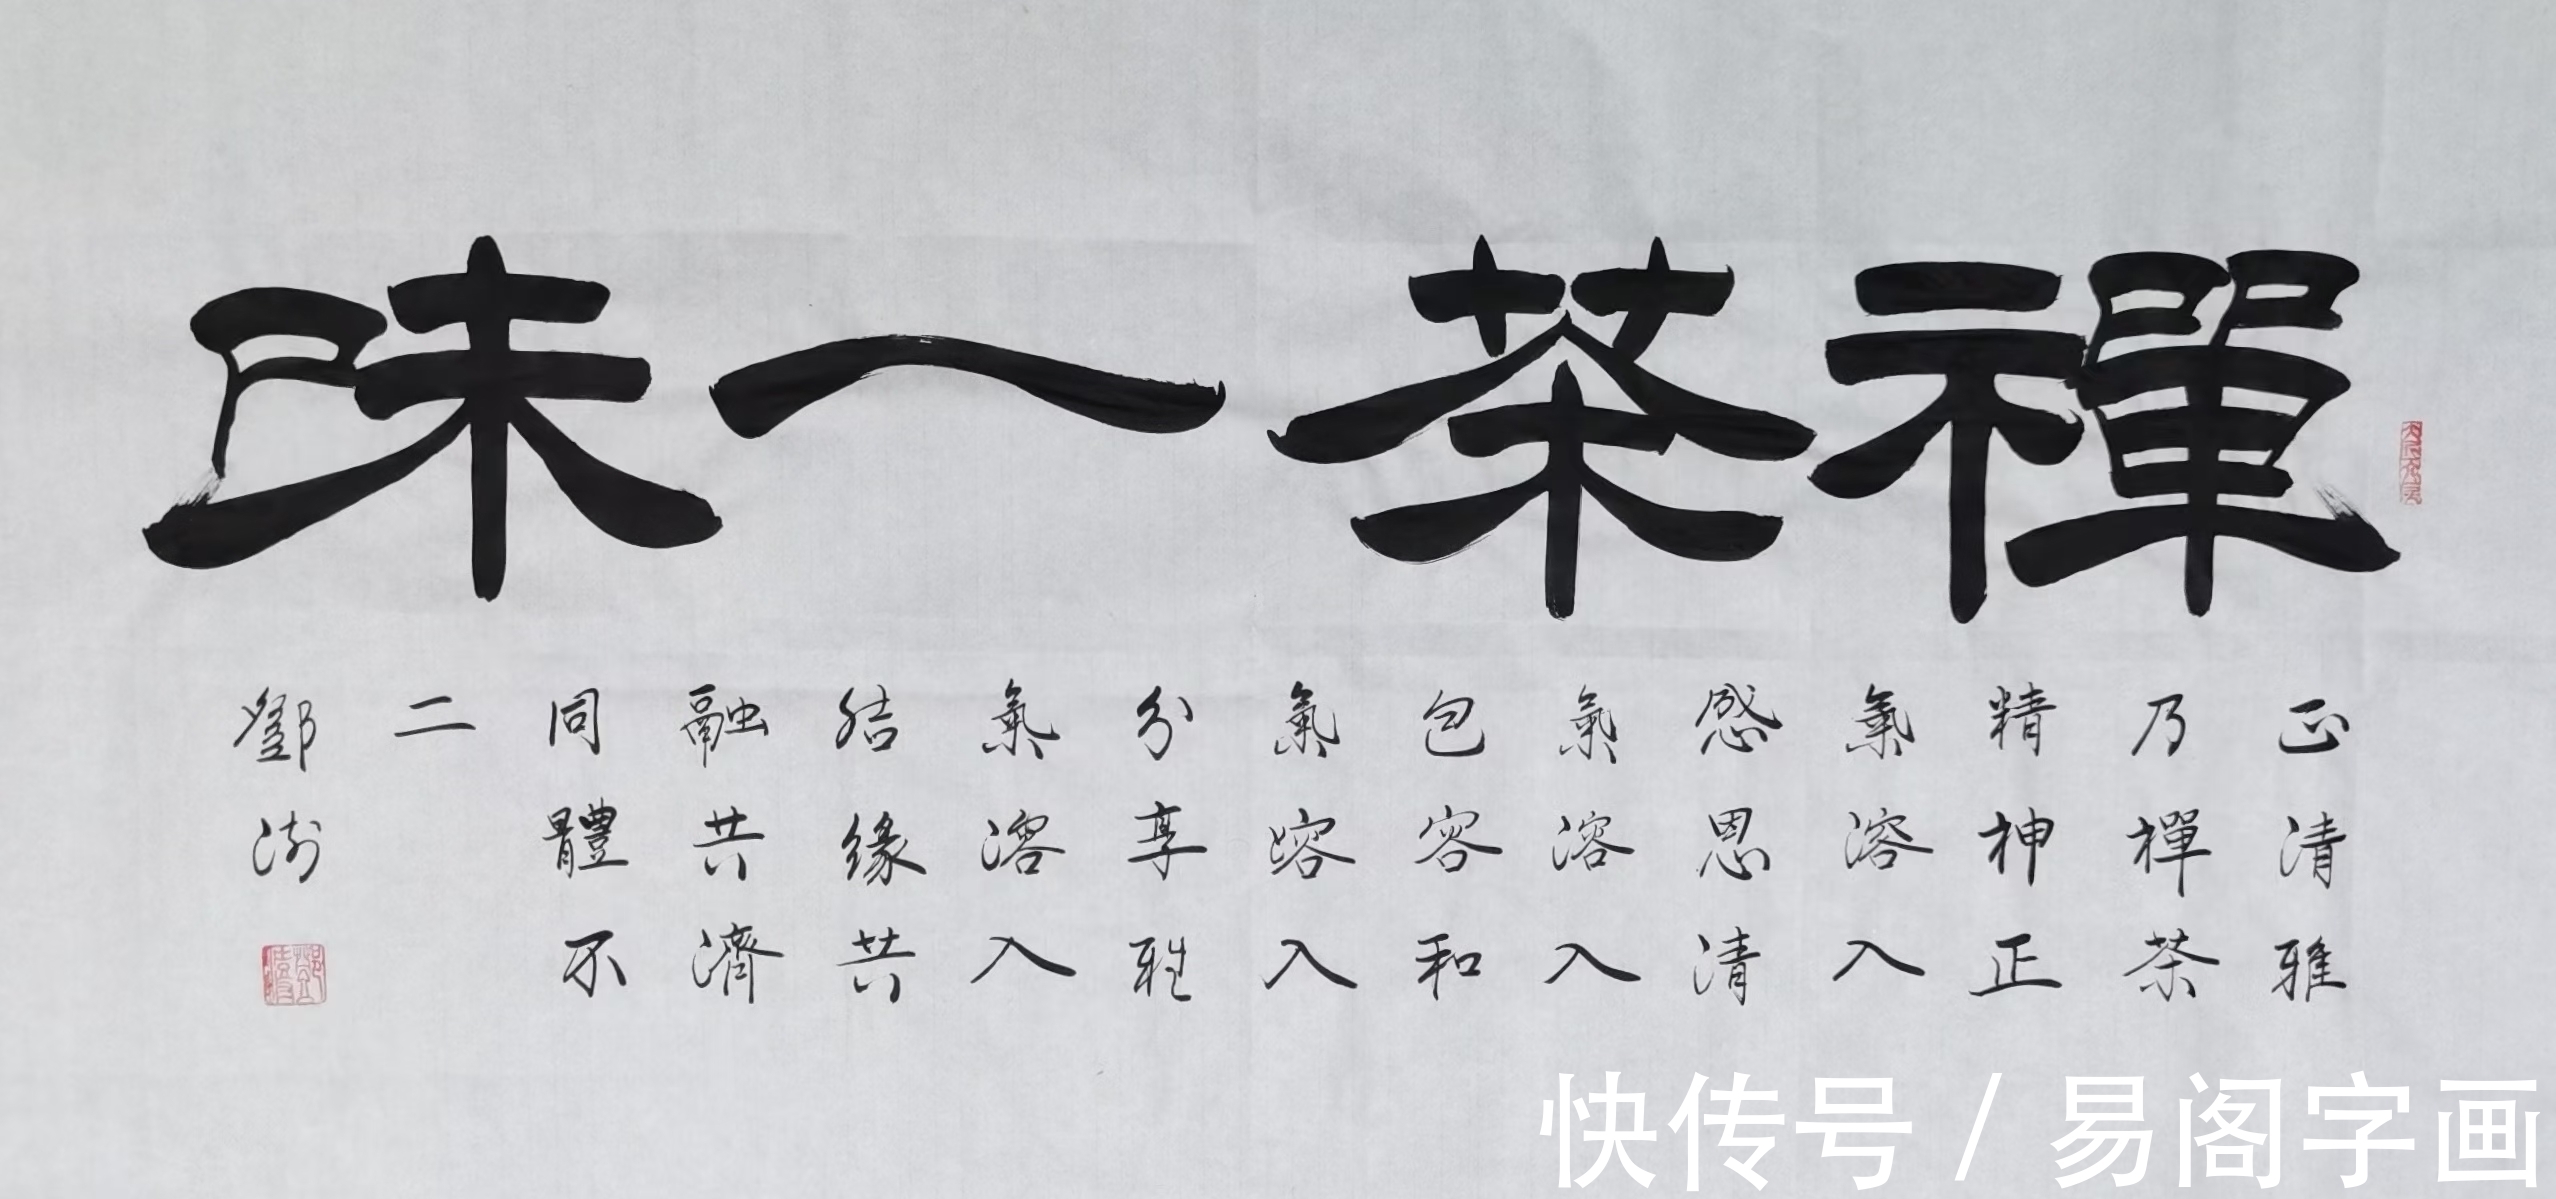 禪茶一味
正清雅
乃禪茶
精神正
氣溶入
感恩清
氣溶入
包容和
氣溶入
分享雅
氣溶入
結緣共
融共濟
同體不
二
鄧
快传号 / 易阁字画